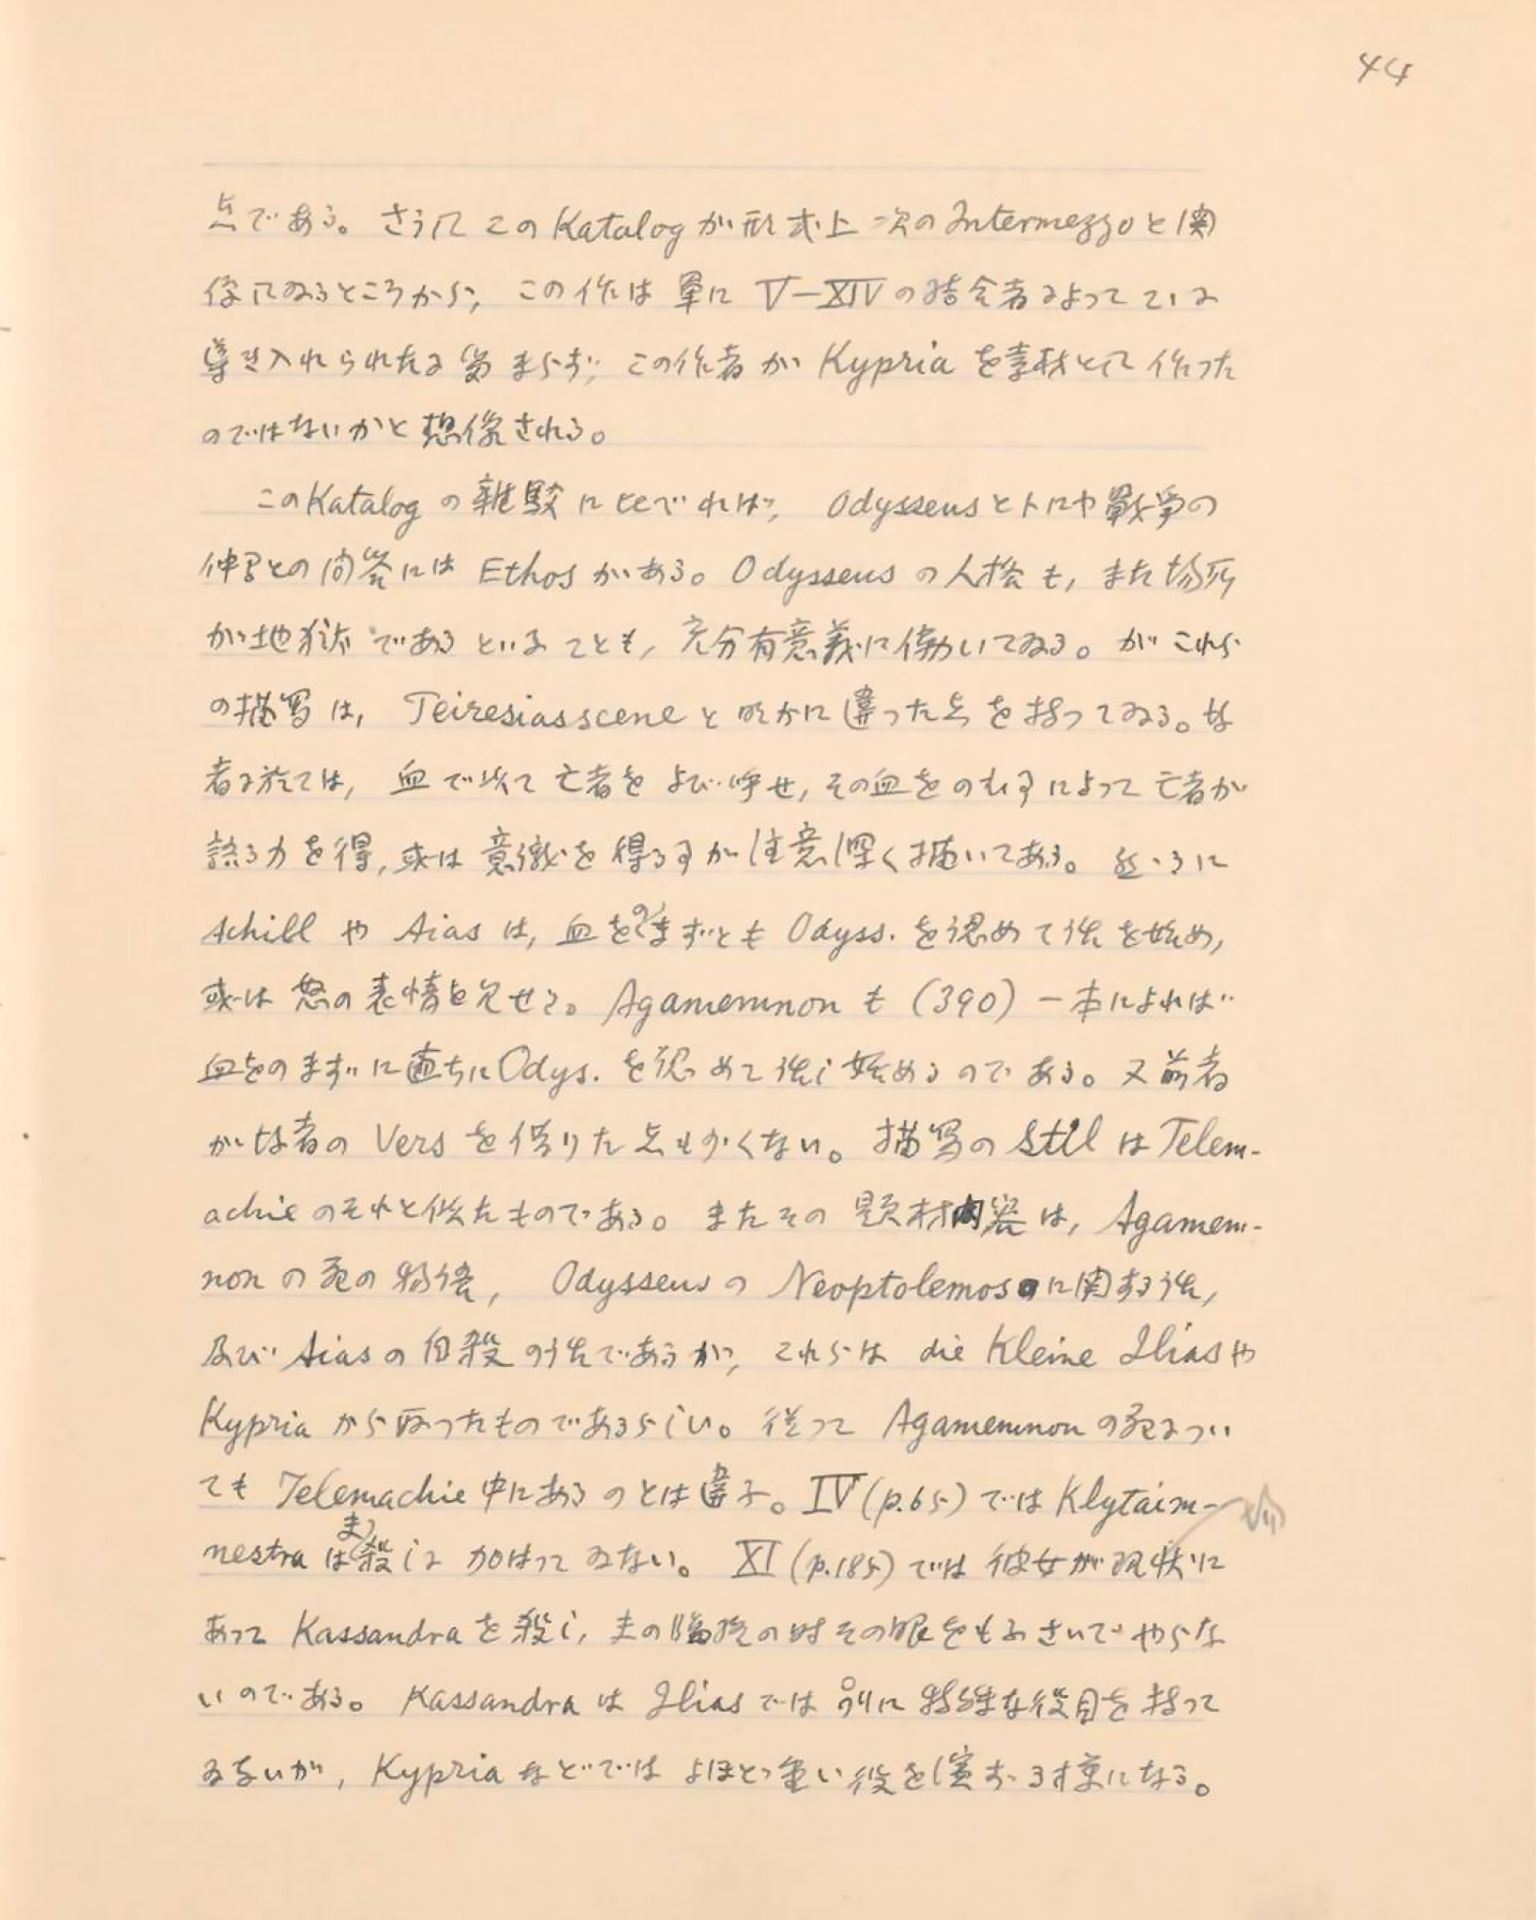 44
点である。さうしてこの Katalog が形式上次の Intermezzo と関
係してゐるところから, この作は單に V—XIV の結合者によってこゝに
導き入れられたに留まらず, この作者が Kypria を素材として作った
のではないかと想像される。
この Katalog の雜駁に比べれば, Odysseus とトロヤ戰爭の
仲間との問答には Ethos がある。Odysseus の人格も, また場所
が地獄であるといふことも, 充分有意義に働いてゐる。がこれら
の描写は, Teiresiasscene と明かに違った点を持ってゐる。後
者に於ては, 血で以て亡者をよび寄せ, その血をのむ事によって亡者が
語る力を得, 或は意識を得る事が注意深く描いてある。然るに
Achill や Aias は, 血をのまずとも Odyss. を認めて話を始め,
或は怒の表情を見せる。Agamemnon も (390) 一本によれば
血をのまずに直ちに Odys. を認めて話し始めるのである。又前者
が後者の Vers を借りた点も少くない。描写の Stil は Telem-
achie のそれと似たものである。またその題材内容は, Agamem-
non の死の物語, Odysseus の Neoptolemos に関する話,
及び Aias の自殺の話であるが, これらは die Kleine Ilias や
Kypria から取ったものであるらしい。従って Agamemnon の死につい
ても Telemachie 中にあるのとは違ふ。IV (p.65) では Klytaim-
nestra はまだ殺しに加はってゐない。XI (p.185) では彼女が現状に
あって Kassandra を殺し, 夫の臨終の時その眼をもふさいでやらな
いのである。Kassandra は Ilias では別に特殊な役目を持って
ゐないが, Kypria などではよほど重い役を演ずる事になる。